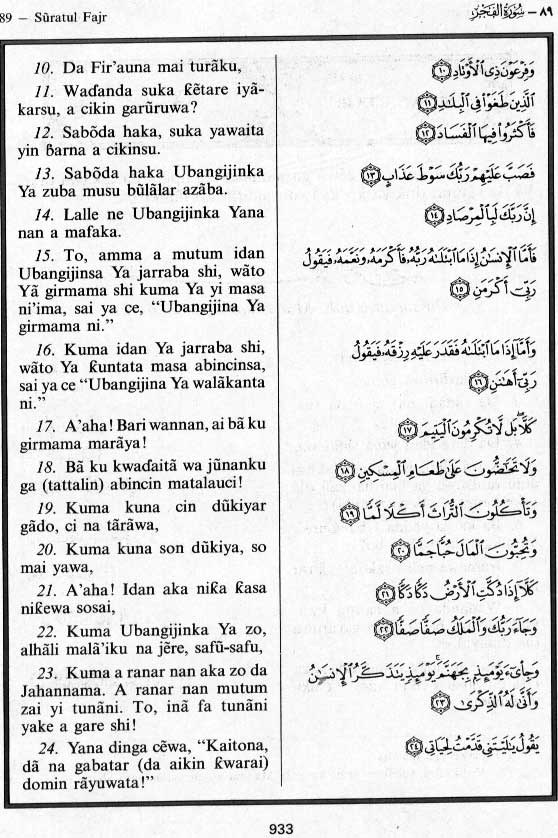 89 – Sũratul Fajr
٨٩ – سُورَةُ الفَجْرِ
10. Da Fir'auna mai turãku,
11. Waɗanda suka ƙẽtare iyã-
karsu, a cikin garũruwa?
12. Sabõda haka, suka yawaita
yin ɓarna a cikinsu.
13. Sabõda haka Ubangijinka
Ya zuba musu bũlãlar azãba.
14. Lalle ne Ubangijinka Yana
nan a mafaka.
15. To, amma a mutum idan
Ubangijinsa Ya jarraba shi, wãto
Yã girmama shi kuma Ya yi masa
ni'ima, sai ya ce, “Ubangijina Ya
girmama ni.”
16. Kuma idan Ya jarraba shi,
wãto Ya ƙuntata masa abincinsa,
sai ya ce “Ubangijina Ya walãkanta
ni.”
17. A'aha! Bari wannan, ai bã ku
girmama marãya!
18. Bã ku kwaɗaitã wa jũnanku
ga (tattalin) abincin matalauci!
19. Kuma kuna cin dũkiyar
gãdo, ci na tãrãwa,
20. Kuma kuna son dũkiya, so
mai yawa,
21. A'aha! Idan aka niƙa ƙasa
niƙewa sosai,
22. Kuma Ubangijinka Ya zo,
alhãli malã'iku na jẽre, safũ-safu,
23. Kuma a ranar nan aka zo da
Jahannama. A ranar nan mutum
zai yi tunãni. To, inã fa tunãni
yake a gare shi!
24. Yana dinga cẽwa, “Kaitona,
dã na gabatar (da aikin ƙwarai)
domin rãyuwata!”
وَفِرْعَوْنَ ذِى ٱلْأَوْتَادِ ١٠
ٱلَّذِينَ طَغَوْا۟ فِى ٱلْبِلَٰدِ ١١
فَأَكْثَرُوا۟ فِيهَا ٱلْفَسَادَ ١٢
فَصَبَّ عَلَيْهِمْ رَبُّكَ سَوْطَ عَذَابٍ ١٣
إِنَّ رَبَّكَ لَبِٱلْمِرْصَادِ ١٤
فَأَمَّا ٱلْإِنسَٰنُ إِذَا مَا ٱبْتَلَىٰهُ رَبُّهُۥ فَأَكْرَمَهُۥ وَنَعَّمَهُۥ فَيَقُولُ
رَبِّىٓ أَكْرَمَنِ ١٥
وَأَمَّآ إِذَا مَا ٱبْتَلَىٰهُ فَقَدَرَ عَلَيْهِ رِزْقَهُۥ فَيَقُولُ
رَبِّىٓ أَهَٰنَنِ ١٦
كَلَّا ۖ بَل لَّا تُكْرِمُونَ ٱلْيَتِيمَ ١٧
وَلَا تَحَٰٓضُّونَ عَلَىٰ طَعَامِ ٱلْمِسْكِينِ ١٨
وَتَأْكُلُونَ ٱلتُّرَاثَ أَكْلًا لَّمًّا ١٩
وَتُحِبُّونَ ٱلْمَالَ حُبًّا جَمًّا ٢٠
كَلَّآ إِذَا دُكَّتِ ٱلْأَرْضُ دَكًّا دَكًّا ٢١
وَجَآءَ رَبُّكَ وَٱلْمَلَكُ صَفًّا صَفًّا ٢٢
وَجِا۟ىٓءَ يَوْمَئِذٍۭ بِجَهَنَّمَ ۚ يَوْمَئِذٍ يَتَذَكَّرُ ٱلْإِنسَٰنُ
وَأَنَّىٰ لَهُ ٱلذِّكْرَىٰ ٢٣
يَقُولُ يَٰلَيْتَنِى قَدَّمْتُ لِحَيَاتِى ٢٤
933